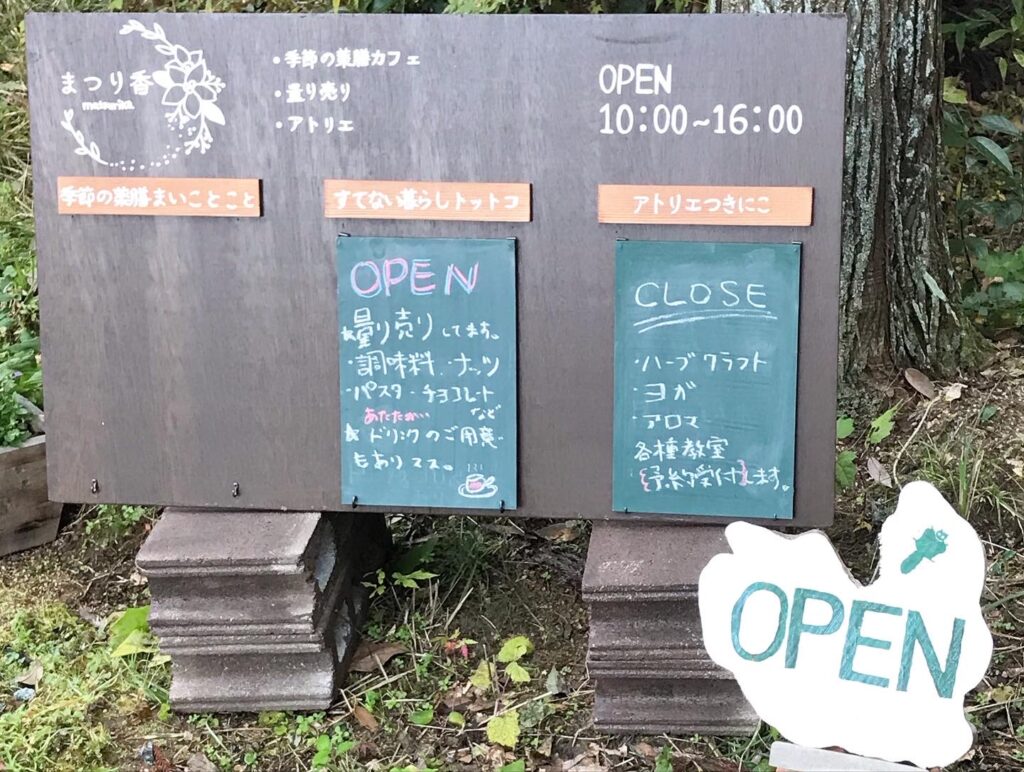 まつり香
matsurika
・季節の薬膳カフェ
・量り売り
・アトリエ
OPEN
10:00~16:00
季節の薬膳まいことこと
すてない暮らしトットコ
アトリエつきにこ
OPEN
★量り売りしてます。
・調味料・ナッツ
・パスタ・チョコレート
など
あたたかい
★ドリンクのご用意
もありマス。
CLOSE
・ハーブクラフト
・ヨガ
・アロマ
各種教室
予約受付えます。
OPEN